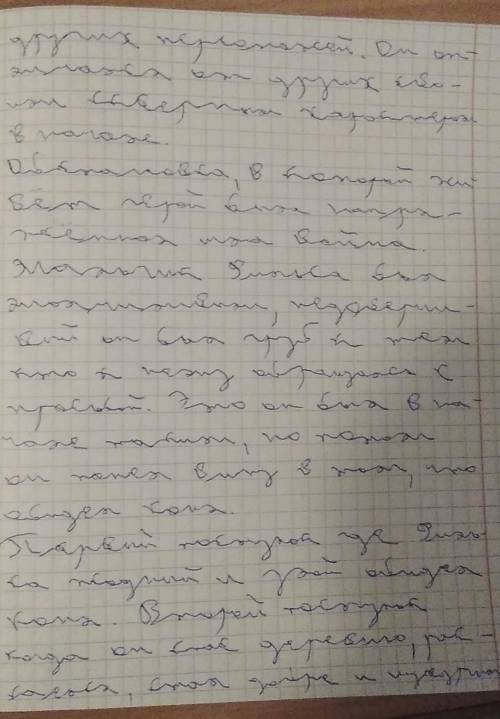 других персонажей. Он от-
личался от других сво-
им скверным характером
в начале.
Обстановка, в которой жи-
вёт герой была напря-
жённая шла война.
Мальчик Филька был
молчаливым, недоверчи-
вый он был груб к тем
кто к нему обращался с
прозьбой. Это он был в на-
чале таким, но потом
он понел вину в том, что
обидел коня.
Первый поступок где Филь-
ка жадный и злой обидел
коня. Второй поступок
когда он спас деревню, рас-
каялся, стал добре и